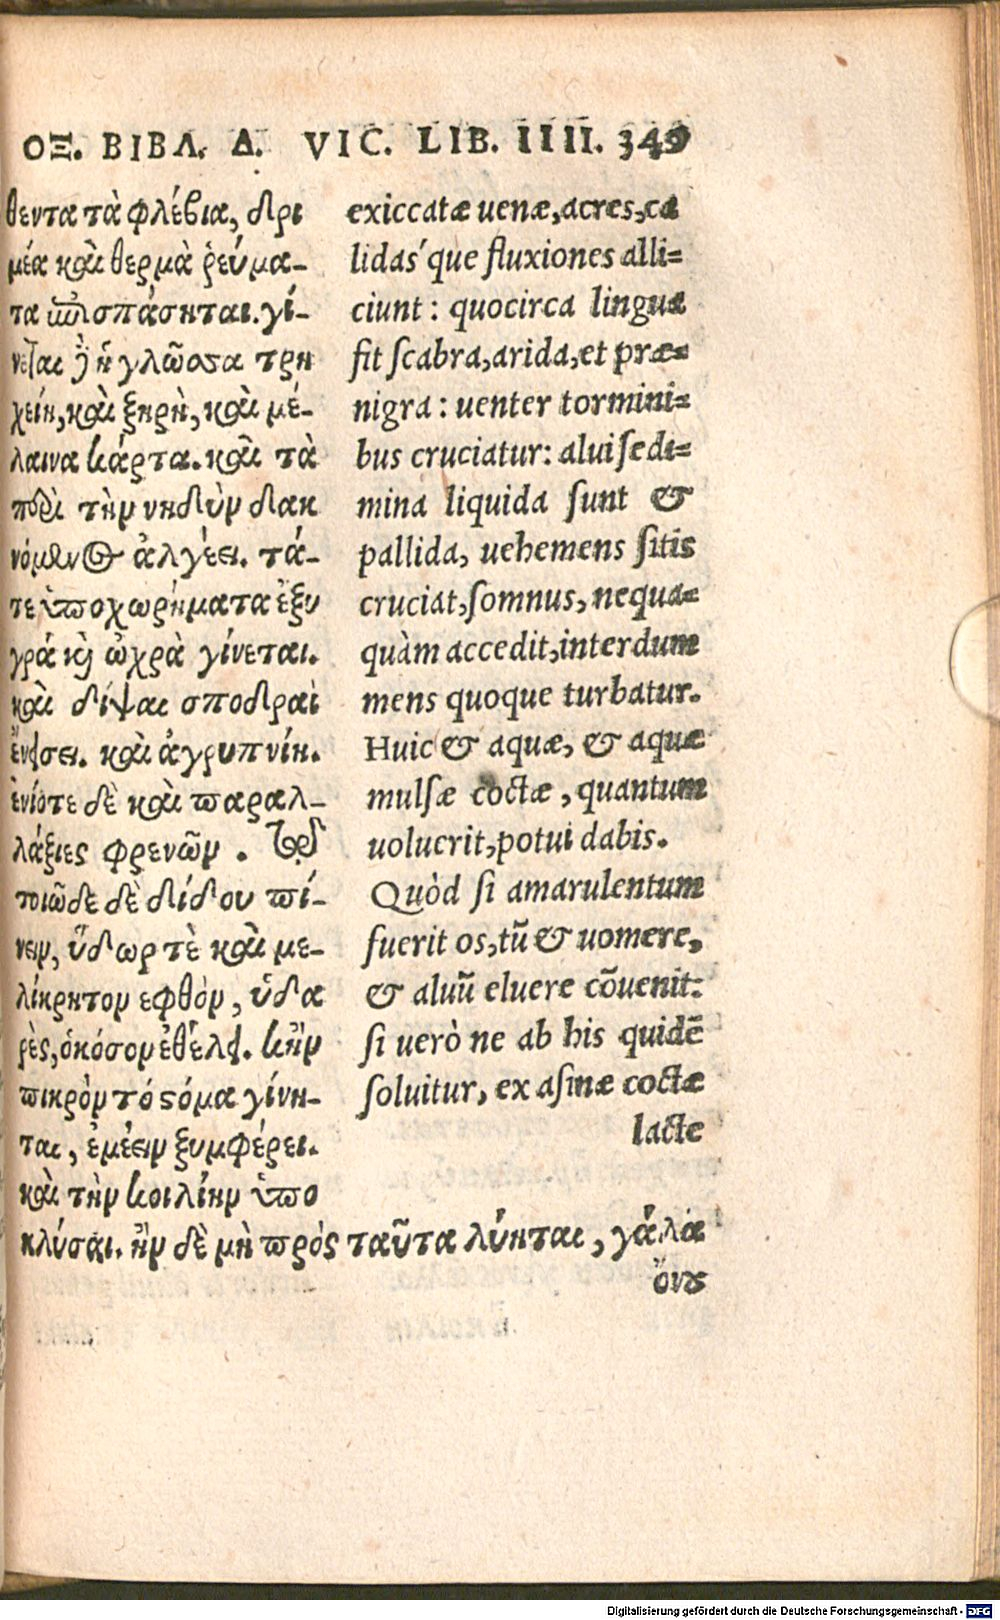 ΟΞ. ΒΙΒΛ. Δ. VIC. LIB. IIII. 349
θεντα τὰ φλέβια, δρι
μέα καὶ θερμὰ ῥεύμα-
τα ἐπισπάσηται. γί-
νεται δὲ ἡ γλῶσσα τρη
χείη, καὶ ξηρὴ, καὶ μέ-
λαινα κάρτα. καὶ τὰ
περὶ τὴν νηδὺν δακ
νόμενος ἀλγέει. τά-
τε ὑποχωρήματα ἐξυ
γρά καὶ ὠχρὰ γίνεται.
καὶ δίψαι σποδραὶ
ἔνεισει. καὶ ἀγρυπνίη.
ἐνίοτε δὲ καὶ παραλ-
λάξιες φρενῶν. τῷδε
ποιῶδε δὲ δίδου πί-
νειν, ὕδωρ τὲ καὶ με-
λίκρητον εφθὸν, ὑδα
ρὲς, ὁκόσον ἐθέλει. κἢν
πικρὸν τό στόμα γίνη-
ται, ἐμέειν ξυμφέρει.
καὶ τὴν κοιλίην ὑπο
κλύσαι. ἢν δὲ μὴ πρὸς ταῦτα λύηται, γάλα
ὄνου
exiccatæ uenæ, acres, ca
lidas´que fluxiones alli=
ciunt: quocirca linguæ
fit scabra, arida, et præ=
nigra: uenter tormini=
bus cruciatur: alui sedi=
mina liquida sunt &
pallida, uehemens sitis
cruciat, somnus, nequa=
quàm accedit, interdum
mens quoque turbatur.
Huic & aquæ, & aquæ
mulsæ coctæ, quantum
uolucrit, potui dabis.
Quòd si amarulentum
fuerit os, tũ & uomere,
& aluũ eluere cõuenit:
si uerò ne ab his quidẽ
soluitur, ex asinæ coctæ
lacte
Digitalisierung gefördert durch die Deutsche Forschungsgemeinschaft - DFG